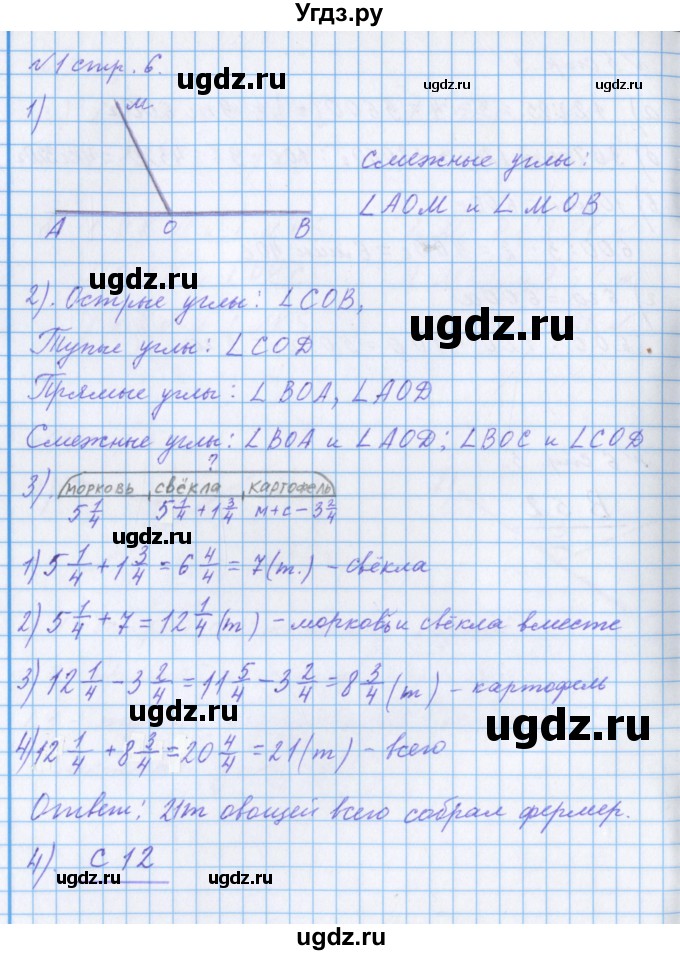 Угдз.ру
№1 стр. 6.
ugdz.ru ugdz.ru
1) М
Смежные углы:
∠AOM и ∠MOB
А О В
ugdz.ru
2). Острые углы: ∠COB,
ugdz.ru
Тупые углы: ∠COD
Прямые углы: ∠BOA, ∠AOD
Смежные углы: ∠BOA и ∠AOD; ∠BOC и ∠COD
?
3). морковь свёкла картофель
5 1/4 5 1/4 + 1 3/4 м+с-3 2/4
ugdz.ru ugdz.ru
1) 5 1/4 + 1 3/4 = 6 4/4 = 7 (т.) - свёкла
2) 5 1/4 + 7 = 12 1/4 (т) - морковь и свёкла вместе
3) 12 1/4 - 3 2/4 = 11 5/4 - 3 2/4 = 8 3/4 (т) - картофель
ugdz.ru
ugdz.ru
4) 12 1/4 + 8 3/4 = 20 4/4 = 21 (т) - всего
Ответ: 21т овощей всего собрал фермер.
4). С 12
ugdz.ru ugdz.ru
ugdz.ru